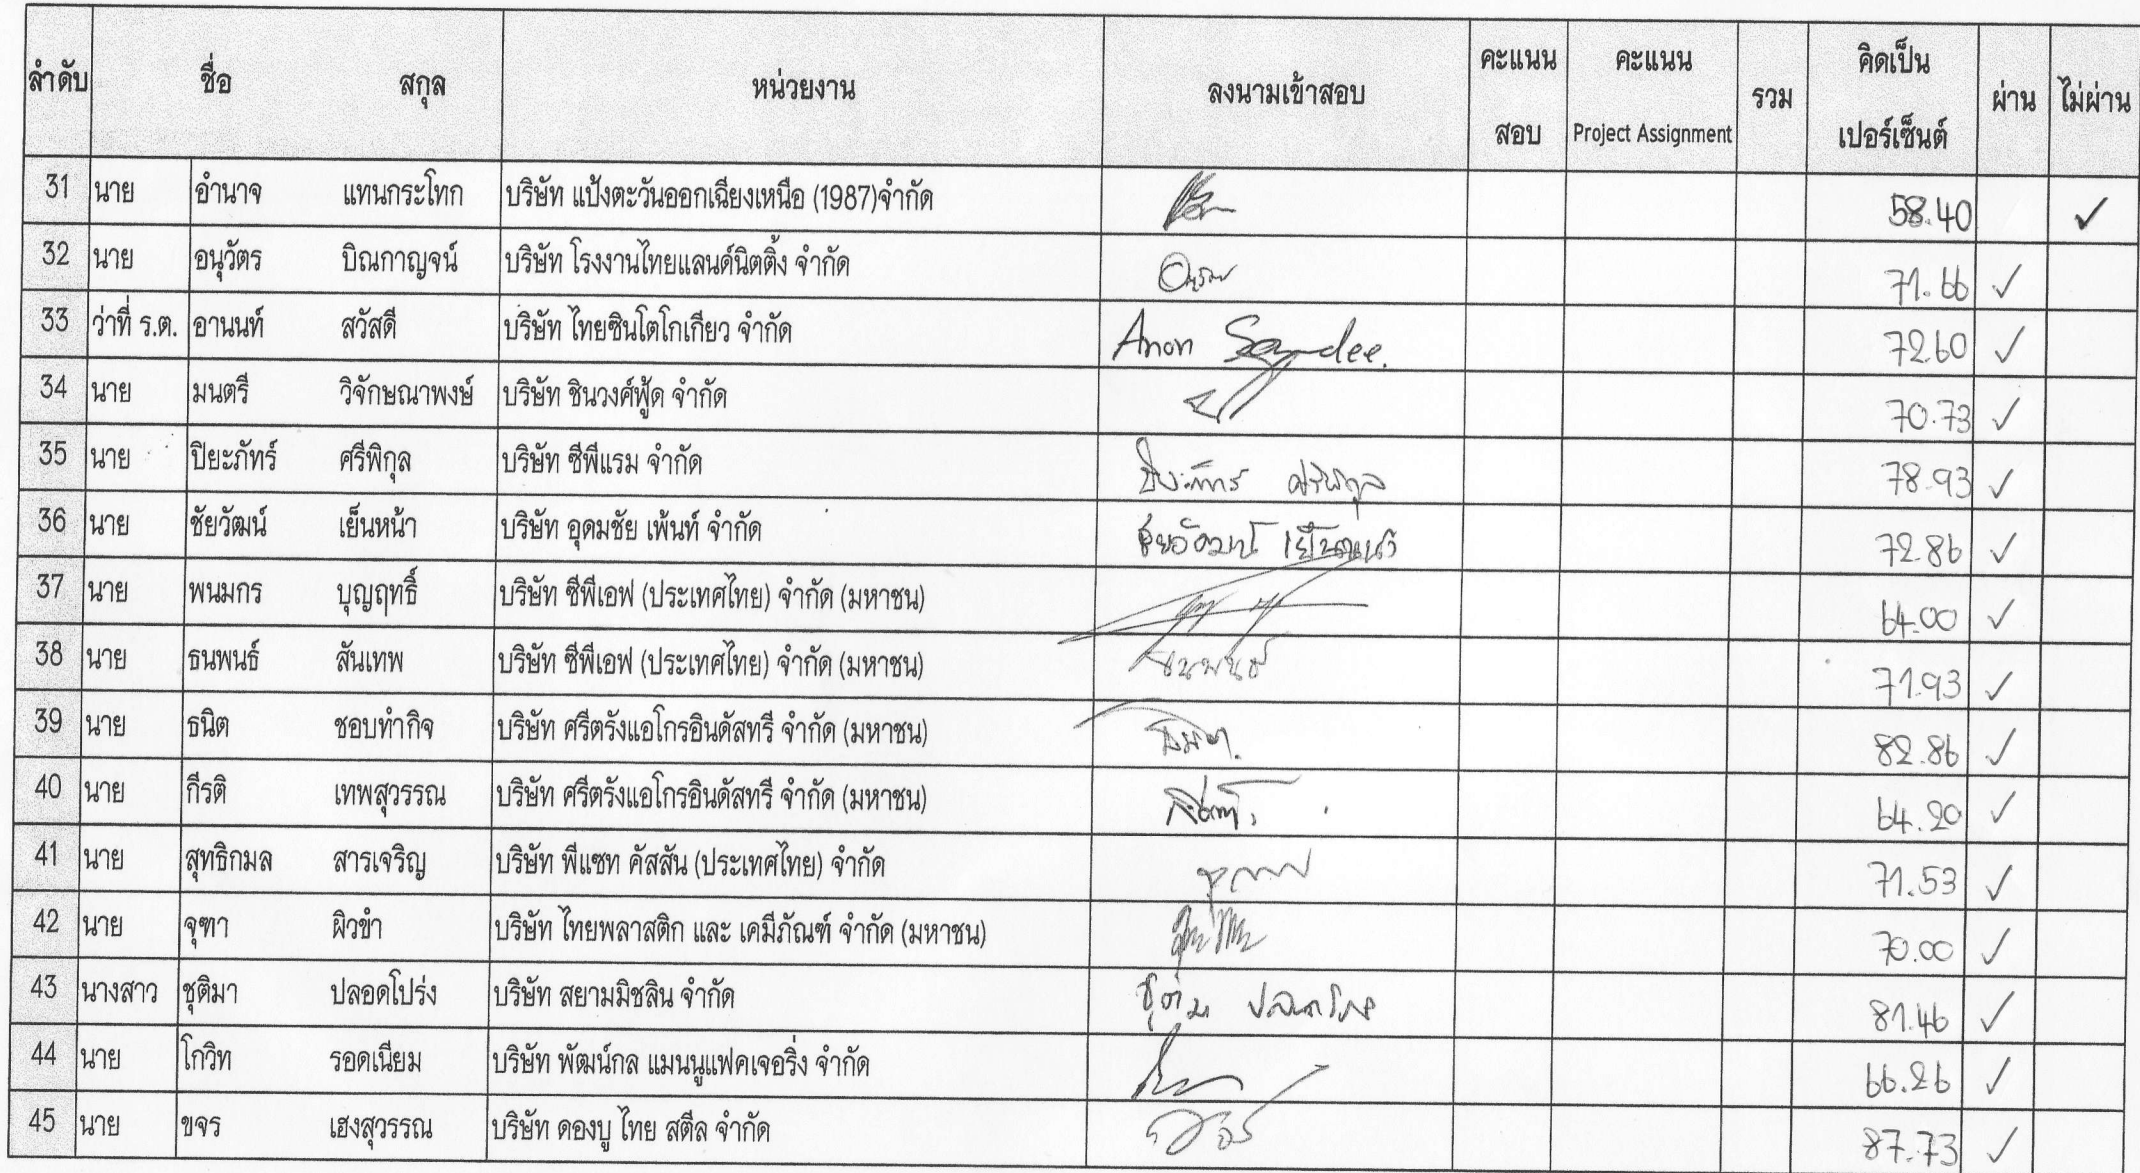 ลำดับ ชื่อ สกุล หน่วยงาน ลงนามเข้าสอบ คะแนน สอบ คะแนน Project Assignment รวม คิดเป็น เปอร์เซ็นต์ ผ่าน ไม่ผ่าน
31 นาย อำนาจ แทนกระโทก บริษัท แป้งตะวันออกเฉียงเหนือ (1987)จำกัด 58.40 ✓
32 นาย อนุวัตร บิณกาญจน์ บริษัท โรงงานไทยแลนด์นิตติ้ง จำกัด 71.66 ✓
33 ว่าที่ ร.ต. อานนท์ สวัสดี บริษัท ไทยซินโตโกเกียว จำกัด Anon 72.60 ✓
34 นาย มนตรี วิจักษณาพงษ์ บริษัท ชินวงศ์ฟู้ด จำกัด 70.73 ✓
35 นาย ปิยะภัทร์ ศรีพิกุล บริษัท ซีพีแรม จำกัด 78.93 ✓
36 นาย ชัยวัฒน์ เย็นหน้า บริษัท อุดมชัย เพ้นท์ จำกัด 72.86 ✓
37 นาย พนมกร บุญฤทธิ์ บริษัท ซีพีเอฟ (ประเทศไทย) จำกัด (มหาชน) 64.00 ✓
38 นาย ธนพนธ์ สันเทพ บริษัท ซีพีเอฟ (ประเทศไทย) จำกัด (มหาชน) ธนพนธ์ 71.93 ✓
39 นาย ธนิต ชอบทำกิจ บริษัท ศรีตรังแอโกรอินดัสทรี จำกัด (มหาชน) 82.86 ✓
40 นาย กีรติ เทพสุวรรณ บริษัท ศรีตรังแอโกรอินดัสทรี จำกัด (มหาชน) 64.20 ✓
41 นาย สุทธิกมล สารเจริญ บริษัท พีแซท คัสสัน (ประเทศไทย) จำกัด 71.53 ✓
42 นาย จุฑา ผิวขำ บริษัท ไทยพลาสติก และ เคมีภัณฑ์ จำกัด (มหาชน) 70.00 ✓
43 นางสาว ชุติมา ปลอดโปร่ง บริษัท สยามมิชลิน จำกัด 81.46 ✓
44 นาย โกวิท รอดเนียม บริษัท พัฒน์กล แมนนูแฟคเจอริ่ง จำกัด 66.26 ✓
45 นาย ขจร เฮงสุวรรณ บริษัท ดองบู ไทย สตีล จำกัด 87.73 ✓